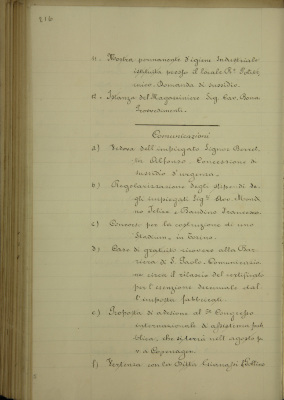 216
c. Mostra permanente d'igiene industriale
istituita presso il locale R° Polite=
cnico. Domanda di sussidio.
d. Istanza del Magazziniere Sig. Cav. Bona
Provvedimenti.
Comunicazioni
a) Vedova dell'impiegato Signor Berret=
ta Alfonso. Concessione di
sussidio d'urgenza.
b) Regolarizzazione degli stipendi de=
gli impiegati Sigri Avv. Mondi=
no Felice e Francesco.
c) Concorso per la costruzione di uno
Stadium, in Torino.
d) Caso di gratuito ricovero alla Bar=
riera di S. Paolo. Comunicazio=
ne circa il rilascio del certificato
per l'esenzione decennale dal=
l'imposta fabbricati.
e) Proposta di adesione al 3° Congresso
internazionale di assistenza pub=
blica, che si terrà nell'agosto p.
v. a Copenaghen
f) Vertenza con la Ditta